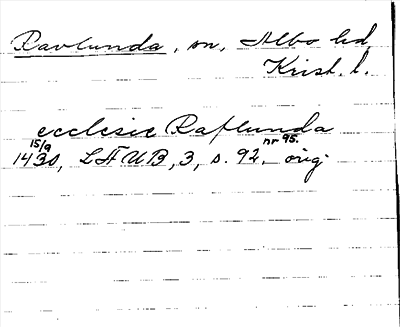 Ravlunda, sn, Albo hd,
Krist. l.
ecclesie Raflunda
15/9 nr 95.
1430, LÄUB, 3, s. 92, orig.